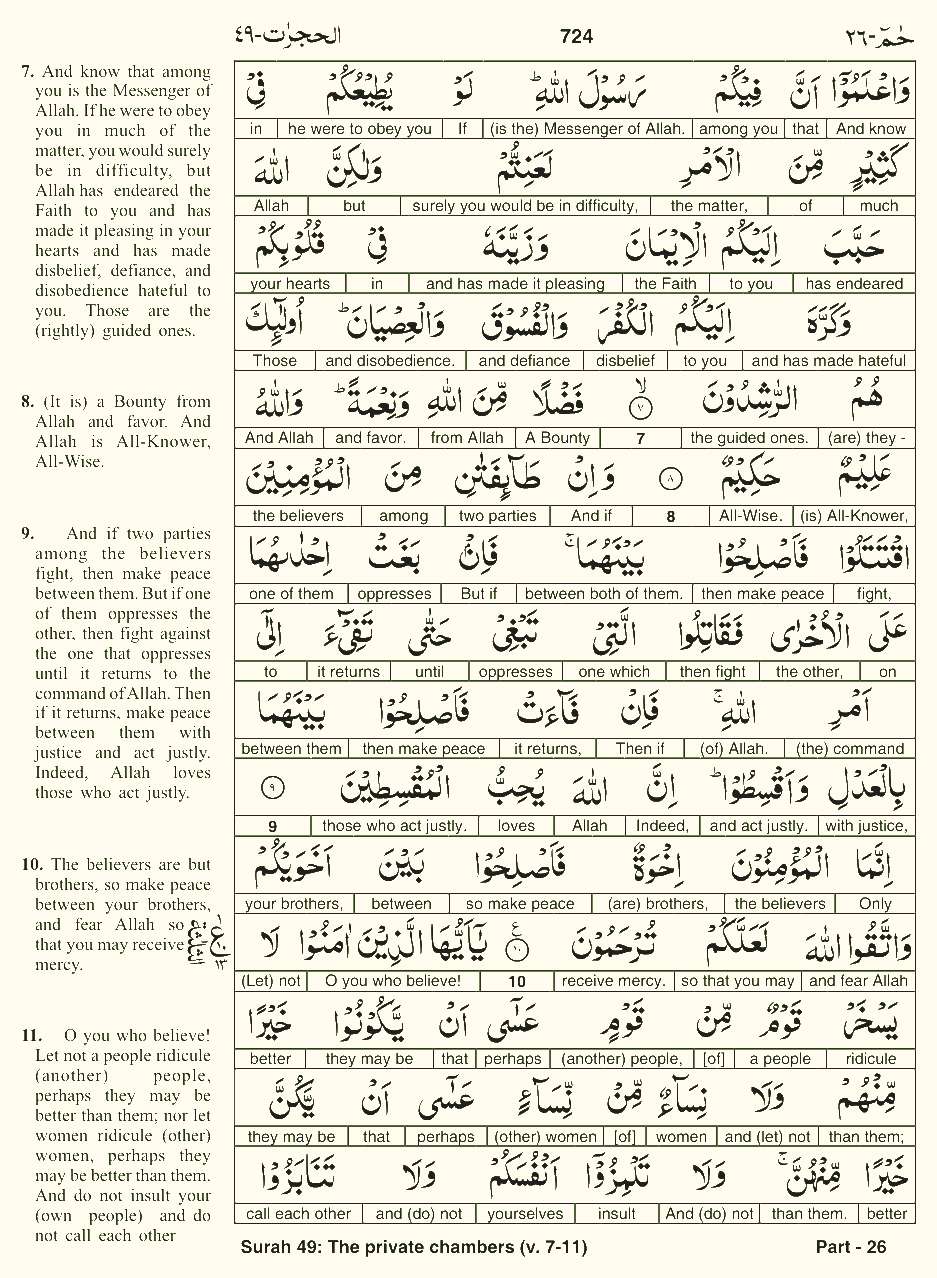 الحجرات-٤٩ 724 حٰمٓ-٢٦
7. And know that among
you is the Messenger of
Allah. If he were to obey
you in much of the
matter, you would surely
be in difficulty, but
Allah has endeared the
Faith to you and has
made it pleasing in your
hearts and has made
disbelief, defiance, and
disobedience hateful to
you. Those are the
(rightly) guided ones.
8. (It is) a Bounty from
Allah and favor. And
Allah is All-Knower,
All-Wise.
9. And if two parties
among the believers
fight, then make peace
between them. But if one
of them oppresses the
other, then fight against
the one that oppresses
until it returns to the
command of Allah. Then
if it returns, make peace
between them with
justice and act justly.
Indeed, Allah loves
those who act justly.
10. The believers are but
brothers, so make peace
between your brothers,
and fear Allah so
that you may receive
mercy.
11. O you who believe!
Let not a people ridicule
(another) people,
perhaps they may be
better than them; nor let
women ridicule (other)
women, perhaps they
may be better than them.
And do not insult your
(own people) and do
not call each other
وَاعْلَمُوْۤا اَنَّ فِيْكُمْ رَسُوْلَ اللّٰهِ ؕ لَوْ يُطِيْعُكُمْ فِيْ
in he were to obey you If (is the) Messenger of Allah. among you that And know
كَثِيْرٍ مِّنَ الْاَمْرِ لَعَنِتُّمْ وَلٰكِنَّ اللّٰهَ
Allah but surely you would be in difficulty, the matter, of much
حَبَّبَ اِلَيْكُمُ الْاِيْمَانَ وَزَيَّنَهٗ فِيْ قُلُوْبِكُمْ
your hearts in and has made it pleasing the Faith to you has endeared
وَكَرَّهَ اِلَيْكُمُ الْكُفْرَ وَالْفُسُوْقَ وَالْعِصْيَانَ ؕ اُولٰٓئِكَ
Those and disobedience. and defiance disbelief to you and has made hateful
هُمُ الرّٰشِدُوْنَ ۙ ٧ فَضْلًا مِّنَ اللّٰهِ وَنِعْمَةً ؕ وَاللّٰهُ
And Allah and favor. from Allah A Bounty 7 the guided ones. (are) they -
عَلِيْمٌ حَكِيْمٌ ٨ وَاِنْ طَآئِفَتٰنِ مِنَ الْمُؤْمِنِيْنَ
the believers among two parties And if 8 All-Wise. (is) All-Knower,
اقْتَتَلُوْا فَاَصْلِحُوْا بَيْنَهُمَا ۚ فَاِنْۢ بَغَتْ اِحْدٰىهُمَا
one of them oppresses But if between both of them. then make peace fight,
عَلَى الْاُخْرٰى فَقَاتِلُوا الَّتِيْ تَبْغِيْ حَتّٰى تَفِيْٓءَ اِلٰٓى
to it returns until oppresses one which then fight the other, on
اَمْرِ اللّٰهِ ۚ فَاِنْ فَآءَتْ فَاَصْلِحُوْا بَيْنَهُمَا
between them then make peace it returns, Then if (of) Allah. (the) command
بِالْعَدْلِ وَاَقْسِطُوْا ؕ اِنَّ اللّٰهَ يُحِبُّ الْمُقْسِطِيْنَ ٩
9 those who act justly. loves Allah Indeed, and act justly. with justice,
اِنَّمَا الْمُؤْمِنُوْنَ اِخْوَةٌ فَاَصْلِحُوْا بَيْنَ اَخَوَيْكُمْ
your brothers, between so make peace (are) brothers, the believers Only
وَاتَّقُوا اللّٰهَ لَعَلَّكُمْ تُرْحَمُوْنَ ١٠ يٰۤاَيُّهَا الَّذِيْنَ اٰمَنُوْا لَا
(Let) not O you who believe! 10 receive mercy. so that you may and fear Allah
يَسْخَرْ قَوْمٌ مِّنْ قَوْمٍ عَسٰٓى اَنْ يَّكُوْنُوْا خَيْرًا
better they may be that perhaps (another) people, [of] a people ridicule
مِّنْهُمْ وَلَا نِسَآءٌ مِّنْ نِّسَآءٍ عَسٰٓى اَنْ يَّكُنَّ
they may be that perhaps (other) women [of] women and (let) not than them;
خَيْرًا مِّنْهُنَّ ۚ وَلَا تَلْمِزُوْۤا اَنْفُسَكُمْ وَلَا تَنَابَزُوْا
call each other and (do) not yourselves insult And (do) not than them. better
Surah 49: The private chambers (v. 7-11) Part - 26